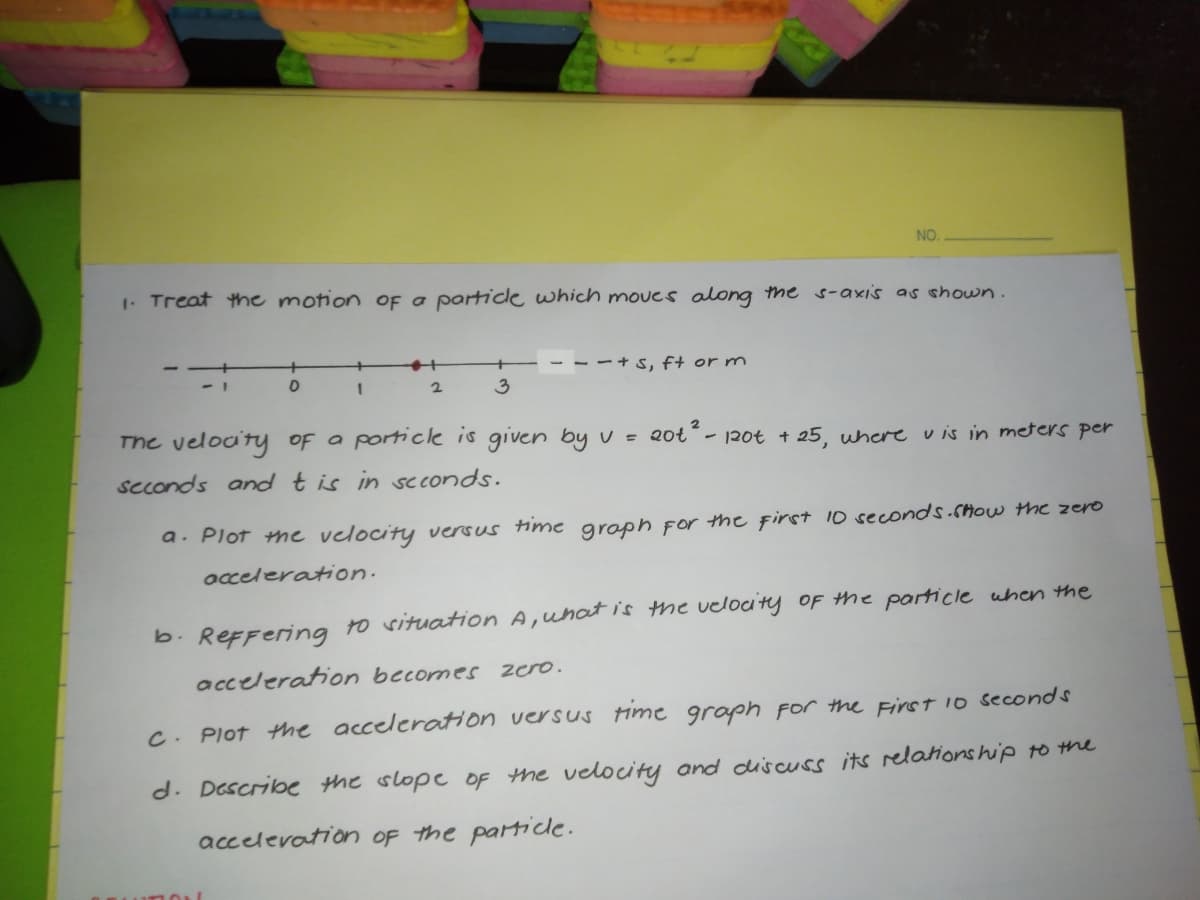 NO.
1. Treat the motion of a particle which moves along the s-axis as shown.
- + s, ft or m
-1 0 1 2 3
The velocity of a particle is given by v = 20t² - 120t + 25, where v is in meters per
seconds and t is in seconds.
a. Plot the velocity versus time graph for the first 10 seconds. Show the zero
acceleration.
b. Reffering to situation A, what is the velocity of the particle when the
acceleration becomes zero.
c. Plot the acceleration versus time graph for the first 10 seconds
d. Describe the slope of the velocity and discuss its relationship to the
acceleration of the particle.